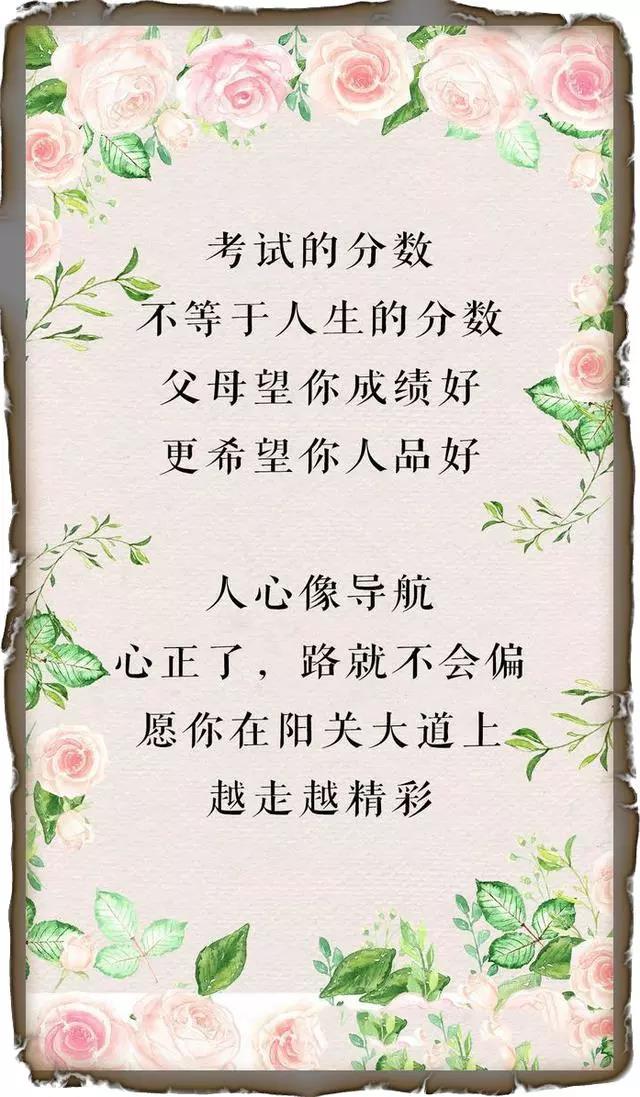 考试的分数
不等于人生的分数
父母望你成绩好
更希望你人品好
人心像导航
心正了，路就不会偏
愿你在阳关大道上
越走越精彩